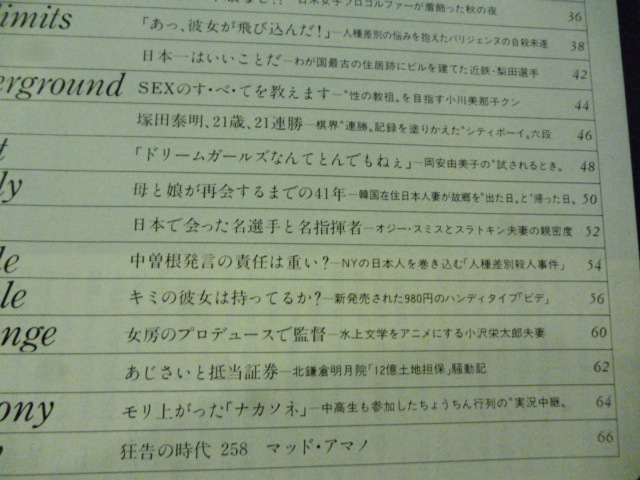 日米女子プロゴルファーが着飾った秋の夜 36
imits 「あっ、彼女が飛び込んだ!」―人種差別の悩みを抱えたパリジェンヌの自殺未遂 38
日本一はいいことだ―わが国最古の住居跡にビルを建てた近鉄・梨田選手 42
erground SEXのす・べ・てを教えます―“性の教祖〟を目指す小川美那子クン 44
塚田泰明、21歳、21連勝―棋界“連勝〟記録を塗りかえた“シティボーイ〟六段 46
t 「ドリームガールズなんてとんでもねぇ」―岡安由美子の“試されるとき〟 48
ly 母と娘が再会するまでの41年―韓国在住日本人妻が故郷を“出た日〟と“帰った日〟 50
日本で会った名選手と名指揮者―オジー・スミスとスラトキン夫妻の親密度 52
le 中曽根発言の責任は重い?―NYの日本人を巻き込む「人種差別殺人事件」 54
le キミの彼女は持ってるか?―新発売された980円のハンディタイプ「ビデ」 56
nge 女房のプロデュースで監督―水上文学をアニメにする小沢栄太郎夫妻 60
あじさいと抵当証券―北鎌倉明月院「12億土地担保」騒動記 62
ony モリ上がった「ナカソネ」―中高生も参加したちょうちん行列の“実況中継〟 64
狂告の時代 258 マッド・アマノ 66